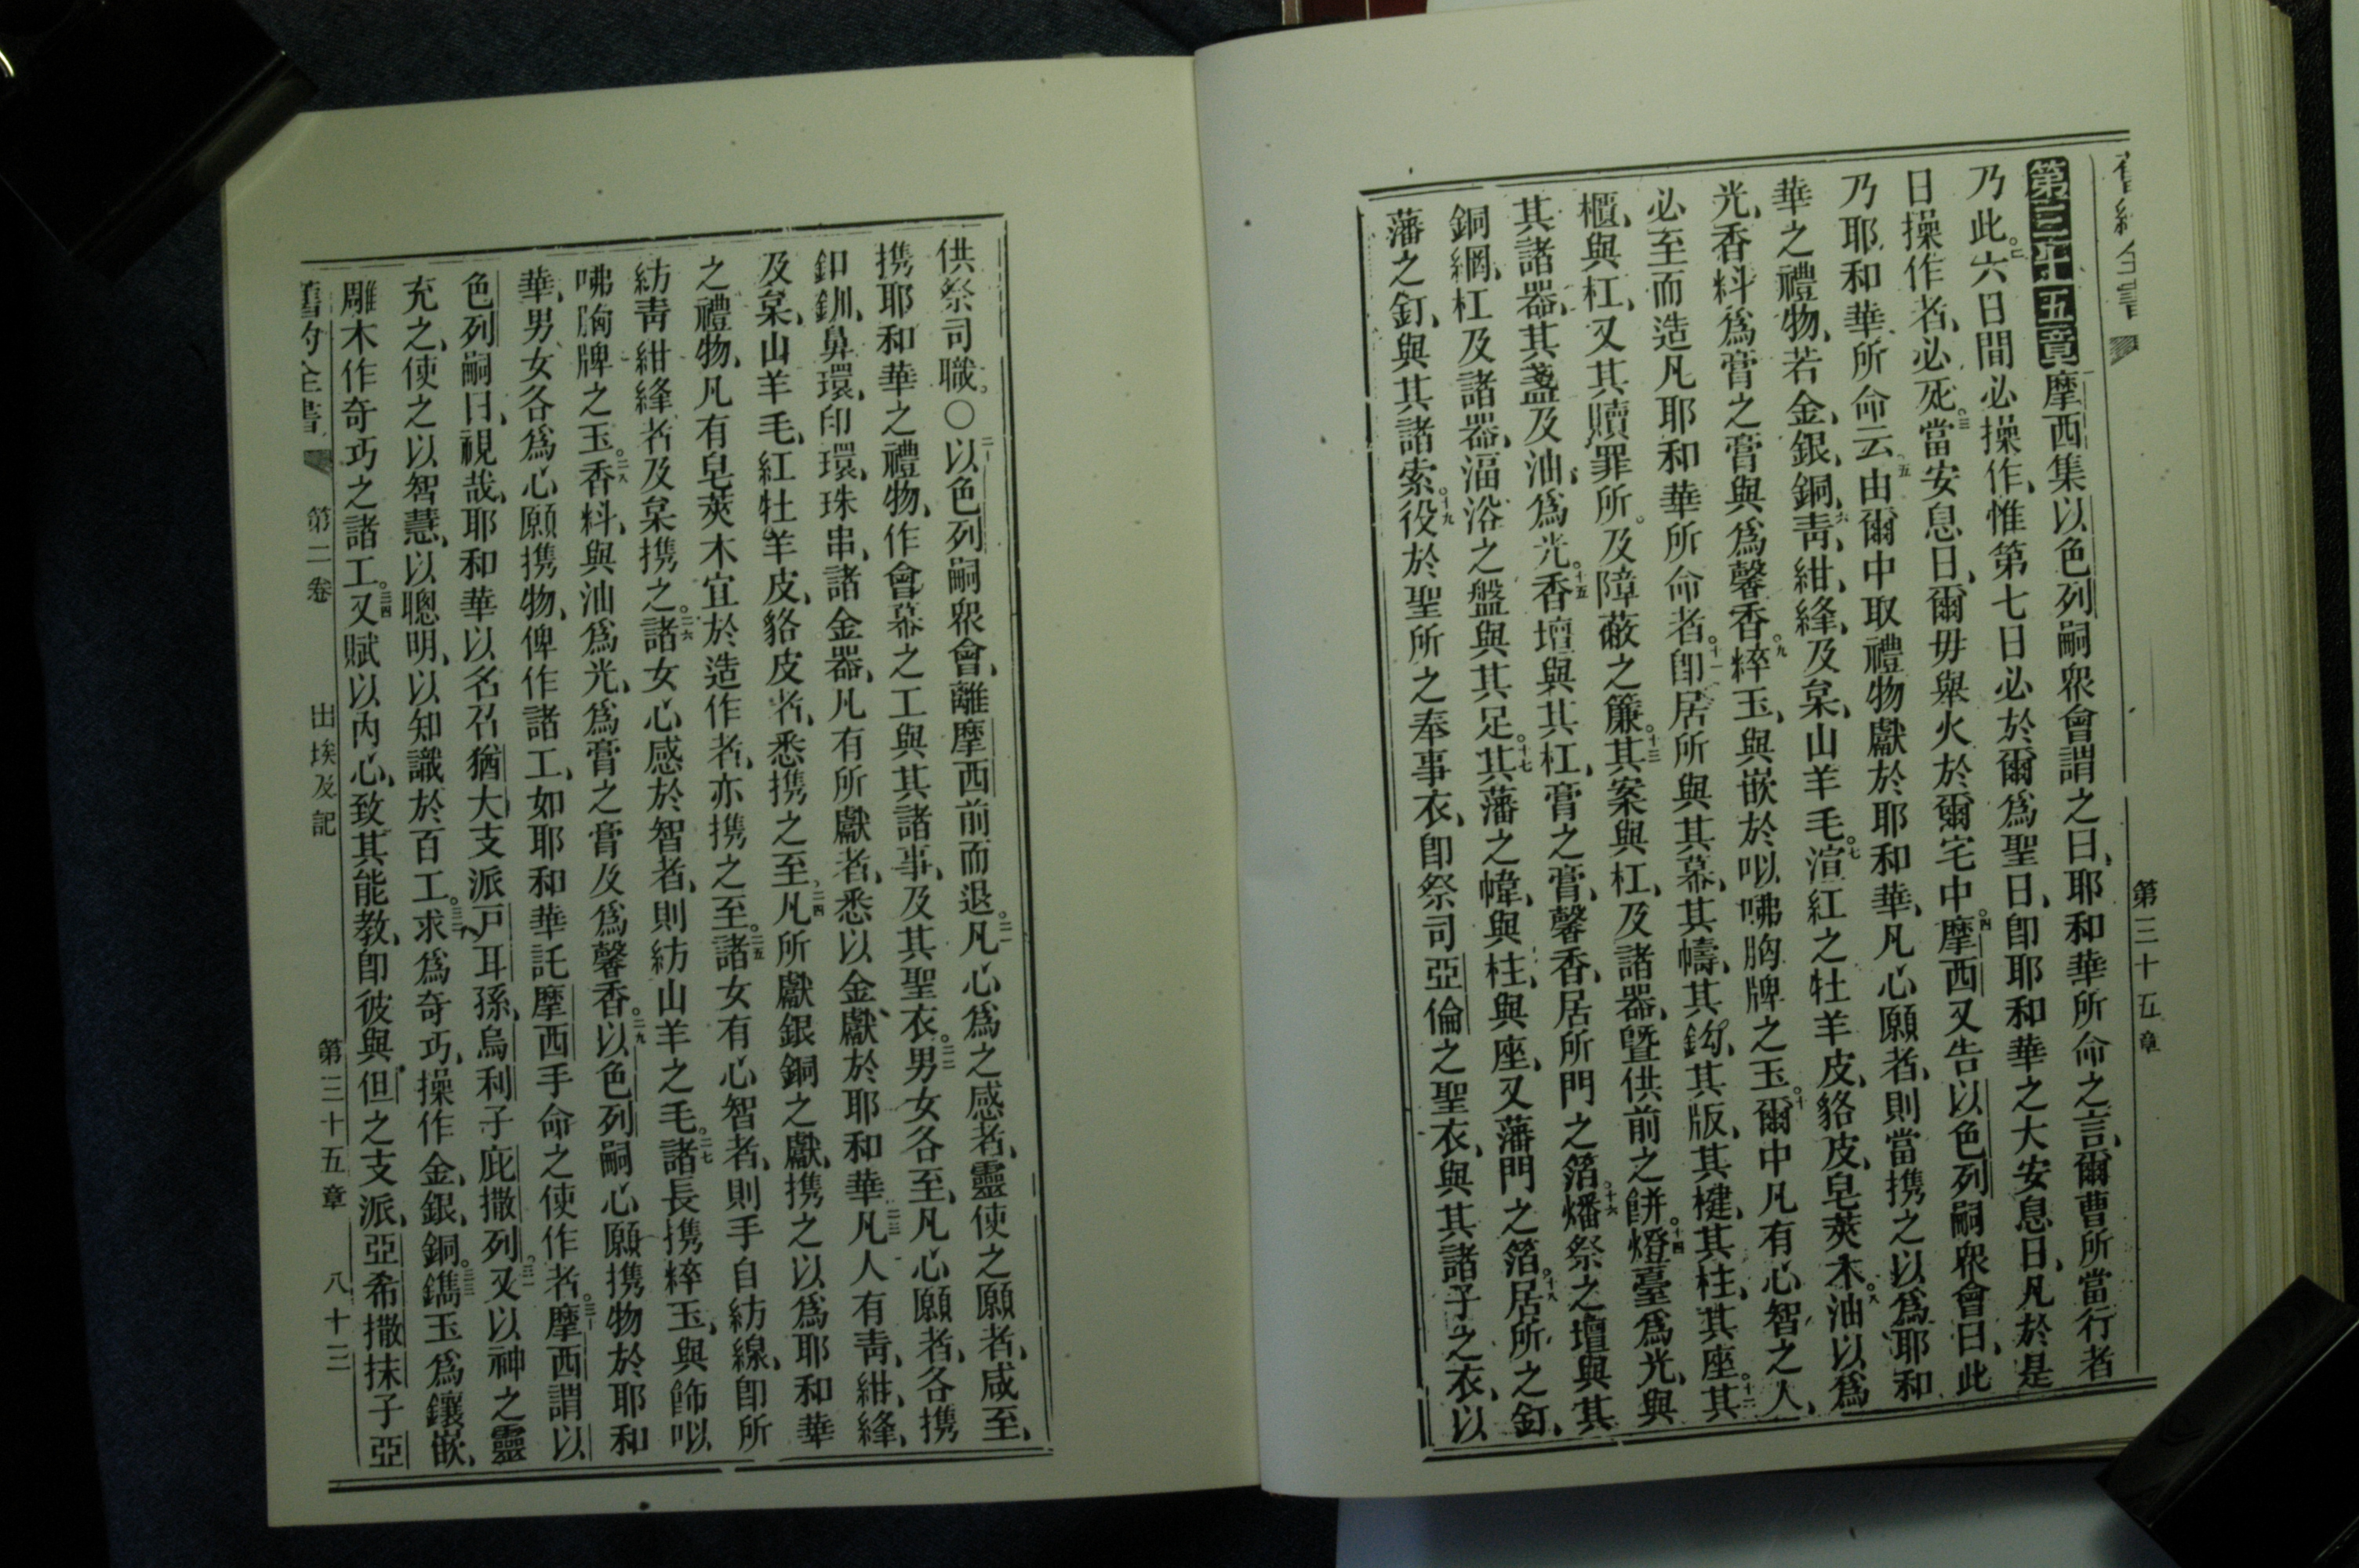 第三十五章
第三十五章摩西集以色列嗣衆會謂之曰、耶和華所命之言、爾曹所當行者
乃此。二六日間必操作、惟第七日必於爾爲聖日、卽耶和華之大安息日、凡於是
日操作者、必死。三當安息日、爾毋舉火於爾宅中。四摩西又告以色列嗣衆會曰、此
乃耶和華所命云、五由爾中取禮物獻於耶和華、凡心願者、則當携之以爲耶和
華之禮物、若金、銀、銅、六青、紺、絳、及枲、山羊毛。七渲紅之牡羊皮、貉皮、皂莢木。八油以爲
光、香料爲膏之膏與爲馨香。九粹玉、與嵌於㕥咈胸牌之玉。十爾中凡有心智之人、
必至而造凡耶和華所命者。十一卽居所與其幕、其幬、其鈎、其版、其楗、其柱、其座。十二其
櫃、與杠、又其贖罪所。及障蔽之簾。十三其案與杠、及諸器、曁供前之餅。十四燈臺爲光、與
其諸器、其盞及油、爲光。十五香壇與其杠、膏之膏、馨香、居所門之箔。十六燔祭之壇與其
銅網、杠及諸器、湢浴之盤與其足。十七其藩之幃、與柱、與座、又藩門之箔。十八居所之釘、
藩之釘、與其諸索。十九役於聖所之奉事衣、卽祭司亞倫之聖衣、與其諸子之衣、以
供祭司職。〇二十以色列嗣衆會、離摩西前而退。二一凡心爲之感者、靈使之願者、咸至、
携耶和華之禮物、作會幕之工與其諸事、及其聖衣。二二男女各至、凡心願者、各携
釦、釧、鼻環、印環、珠串、諸金器、凡有所獻者、悉以金、獻於耶和華。二三凡人有青、紺、絳、
及枲、山羊毛、紅牡羊皮、貉皮者、悉携之至、二四凡所獻銀銅之獻、携之以爲耶和華
之禮物、凡有皂莢木宜於造作者、亦携之至。二五諸女有心智者、則手自紡線、卽所
紡青紺絳者及枲携之。二六諸女心感於智者、則紡山羊之毛。二七諸長携粹玉、與飾㕥
咈胸牌之玉。二八香料、與油爲光、爲膏之膏及爲馨香。二九以色列嗣心願携物於耶和
華、男女各爲心願携物、俾作諸工、如耶和華託摩西手命之使作者。三十摩西謂以
色列嗣曰、視哉、耶和華以名召猶大支派戸耳孫、烏利子庇撒列。三一又以神之靈
充之、使之以智慧、以聰明、以知識於百工。三二求爲奇巧、操作金、銀、銅。三三鐫玉爲鑲嵌、
雕木作奇巧之諸工。三四又賦以內心、致其能教、卽彼與但之支派、亞希撒抹子亞
舊約全書 第二卷 出埃及記 第三十五章 八十三